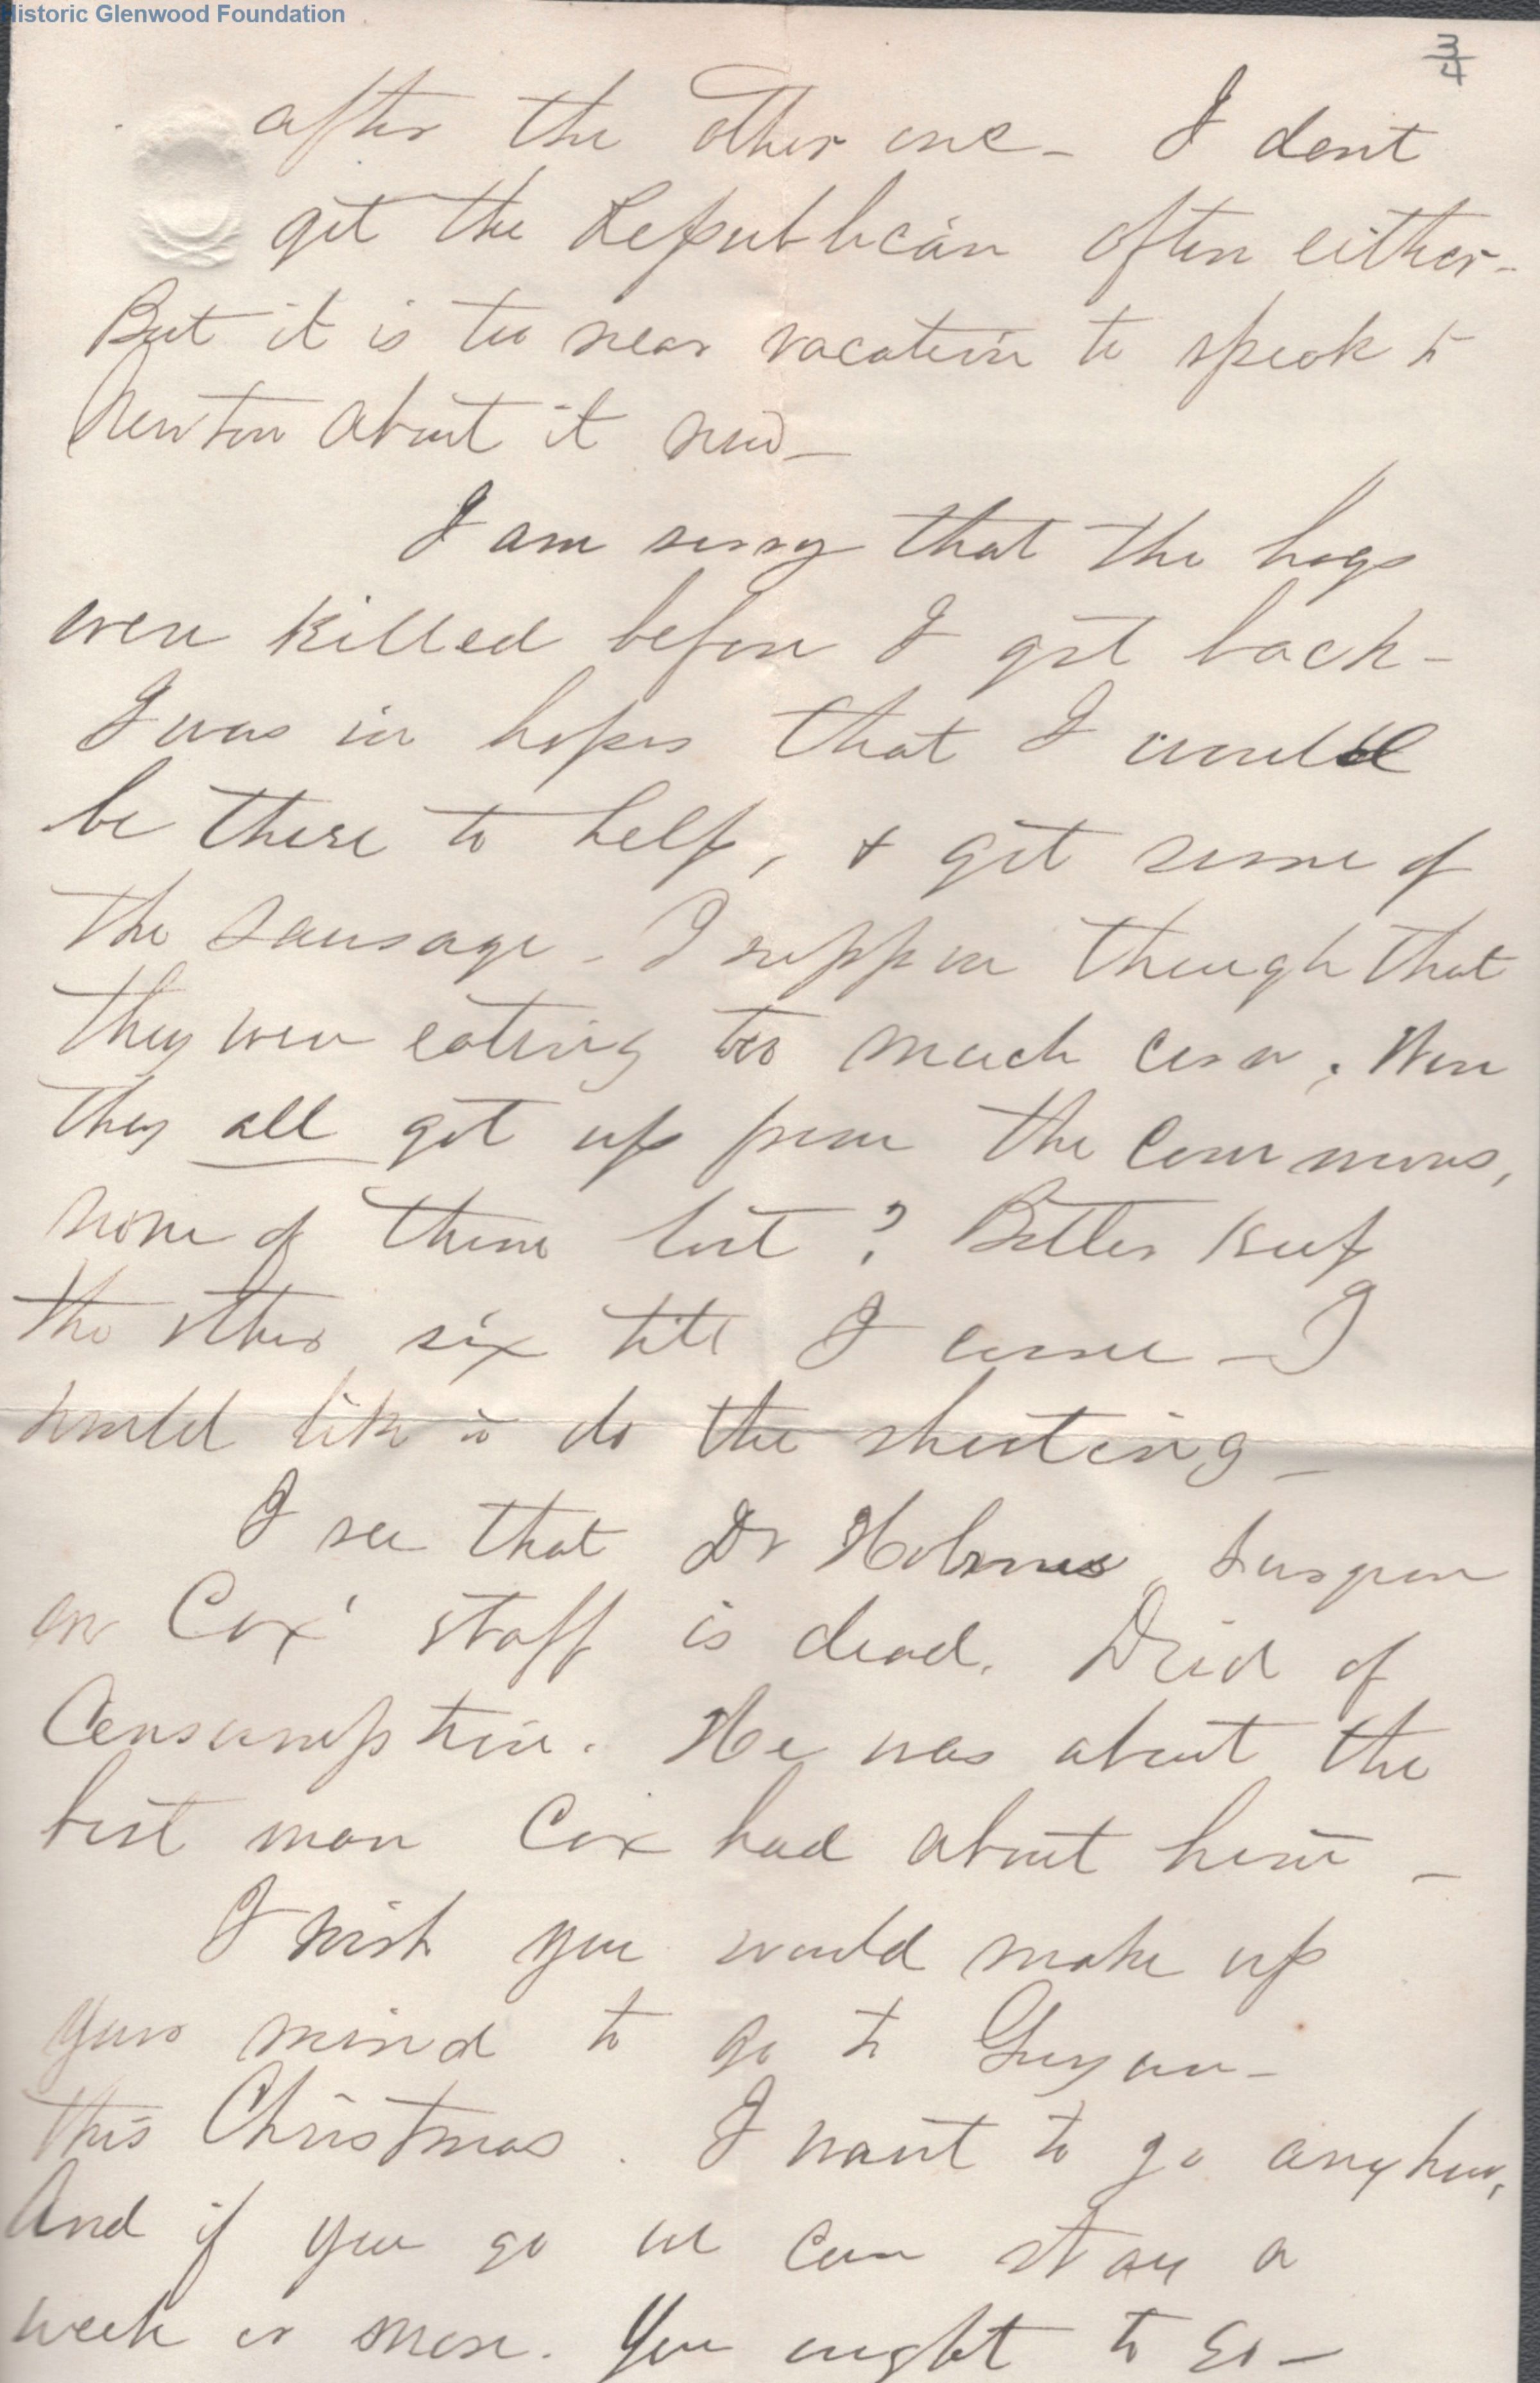 Historic Glenwood Foundation
3/4
after the other one - I dont
get the Republican often either -
But it is too near vacation to speak to
Newton about it now -
I am sorry that the hogs
were killed before I got back -
I was in hopes that I would
be there to help, & get some of
the sausage - I suppose though that
they were eating too much corn. Were
they all got up from the commons,
none of them lost? Better keep
the other six till I come - I
would like to do the shooting -
I see that Dr Holmes, Surgeon
on Cox' staff is dead. Died of
Consumption. He was about the
best man Cox had about him -
I wish you would make up
your mind to go to Guyan -
this Christmas. I want to go anyhow,
And if you go we can stay a
week or more. You ought to go -